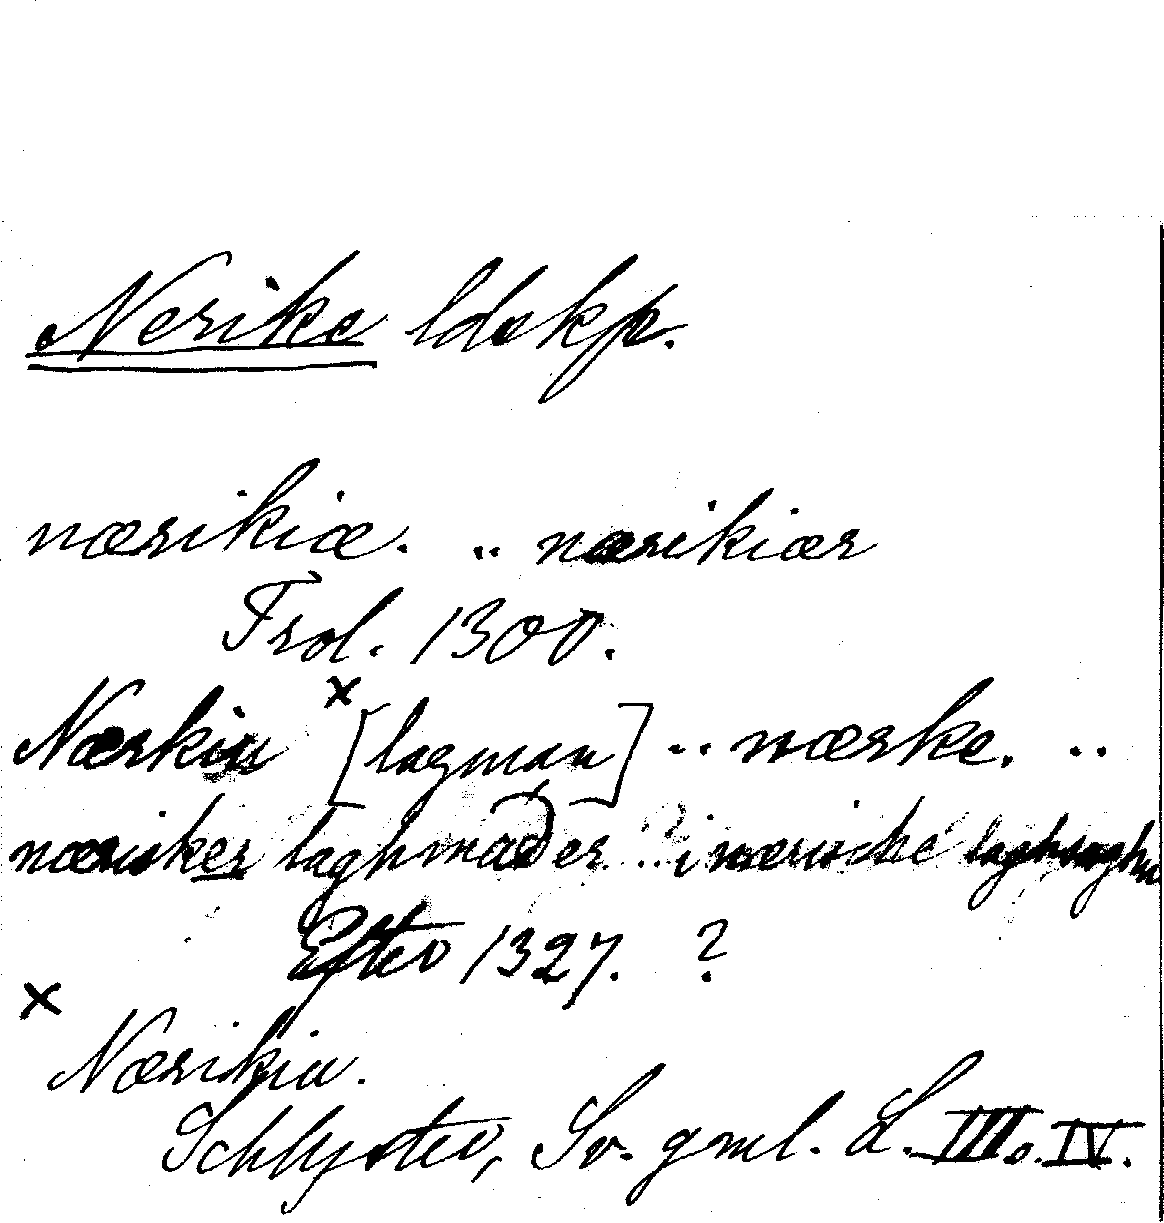 Nerike ldskp.
nærikiæ. .. nærikiær
Frol. 1300.
Nærkiu x [lagman] .. nærke. ..
nærisker laghmaðer .. i nærische laghsaghu
Efter 1327. ?
x Nærikiu.
Schlyter, Sv. gml. L. III o. IV.